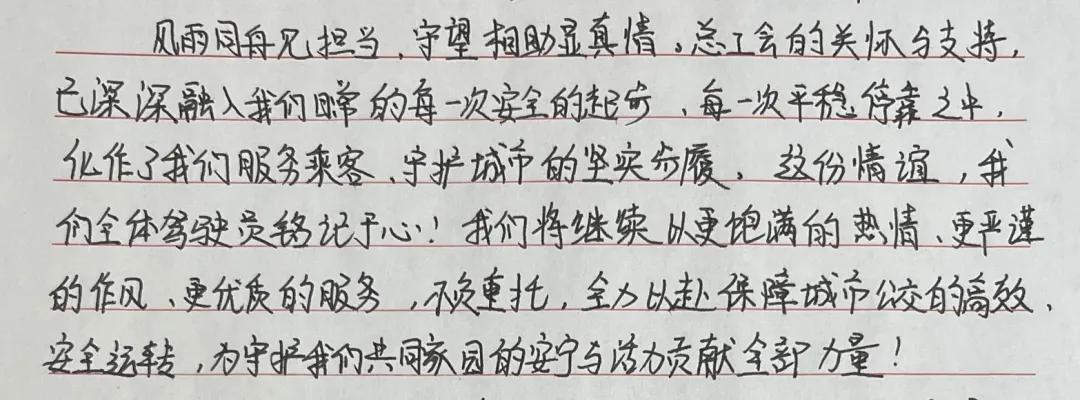 风雨同舟见担当，守望相助显真情。总工会的关怀与支持，
已深深融入我们日常的每一次安全的起步、每一次平稳停靠之中，
化作了我们服务乘客、守护城市的坚实步履。这份情谊，我
们全体驾驶员铭记于心！我们将继续以更饱满的热情、更严谨
的作风、更优质的服务，不负重托，全力以赴保障城市公交的高效、
安全运转，为守护我们共同家园的安宁与活力贡献全部力量！